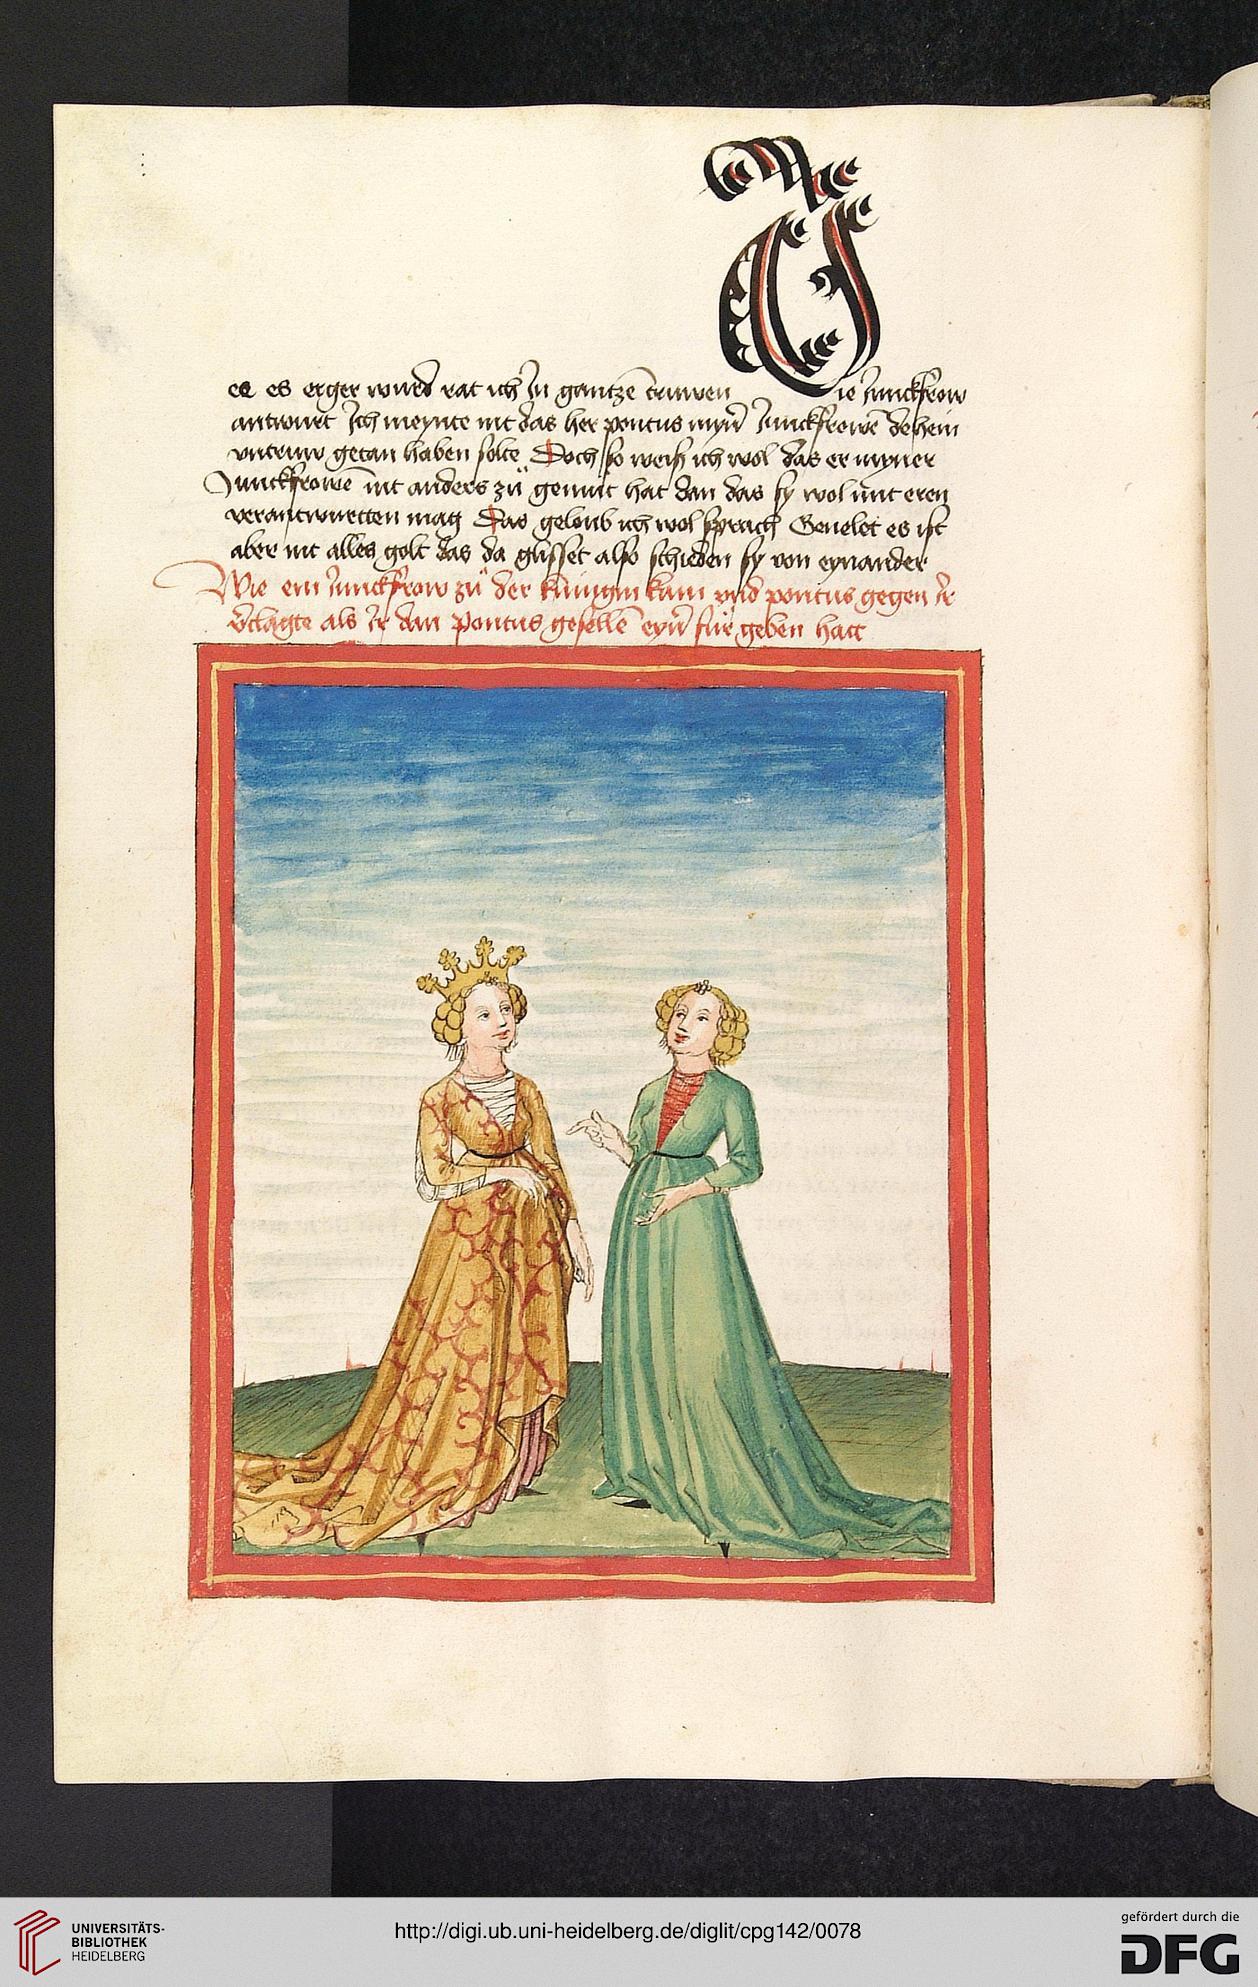 ee es erger wurd rat ich Jn gantzē truwen Die Junckfrow
antwurt Jch meynte nit das her pontus myn̄ Junckfrowē dehein
vntruw getan haben solte Doch so weiß ich wol das er myner
Junckfrowē nit anders zů gemůt hat dan das sy wol mit eren
verantwurtten mag Das geloub ich wol sprach Genelet es ist
aber nit alles golt das da glisset also schieden sy von eynander
Wie ein Junckfrow zů der kúnigin kam vnd pontus gegen Jr
v̄clagte als Jr dan Pontus gesellē eyn̄ für geben hatt
UNIVERSITÄTS-
BIBLIOTHEK
HEIDELBERG
http://digi.ub.uni-heidelberg.de/diglit/cpg142/0078
gefördert durch die
DFG